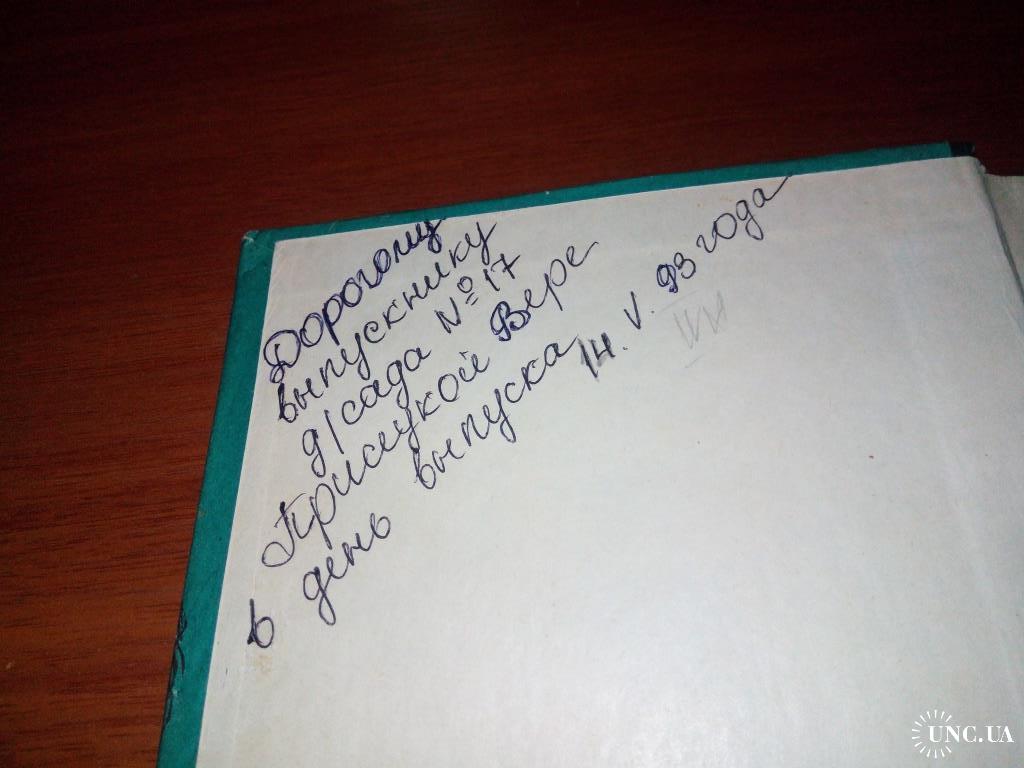 Дорогому
выпускнику
д/сада № 17
Вере
в день выпуска 14. V. 93 года
UNC.UA